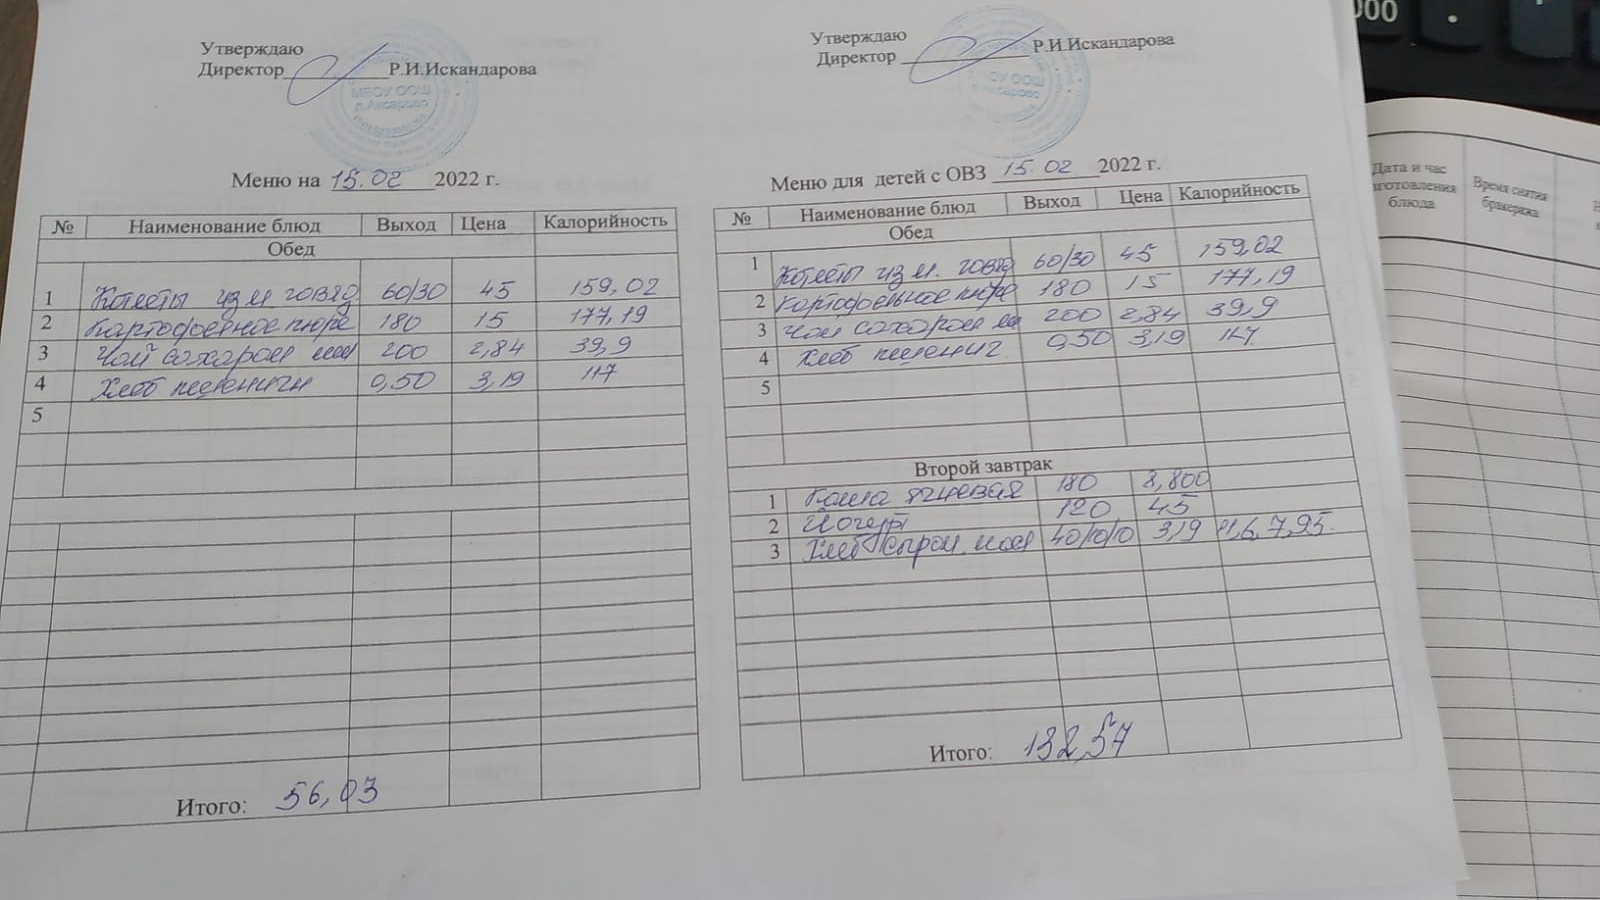 Утверждаю
Директор Р.И.Искандарова
МБОУ ООШ
д.Аксарово
Меню на 15.02 2022 г.
№ Наименование блюд Выход Цена Калорийность
Обед
1 Котлеты из м говяд 60/30 45 159,02
2 Картофельное пюре 180 15 177,19
3 Чай сахаром 200 2,84 39,9
4 Хлеб пшеничн 0,50 3,19 117
5
Итого: 56,03
Утверждаю
Директор Р.И.Искандарова
Меню для детей с ОВЗ 15.02 2022 г.
№ Наименование блюд Выход Цена Калорийность
Обед
1 Котлеты из м. говяд 60/30 45 159,02
2 Картофельное пюре 180 15 177,19
3 Чай сахаром 200 2,84 39,9
4 Хлеб пшенич. 0,50 3,19 117
5
Второй завтрак
1 Каша ячневая 180 8,800
2 Йогурт 120 45
3 Хлеб сыром 40/10/10 3,19
Итого: 132,57
000
Дата и час
Время снятия
блюда
бракеража